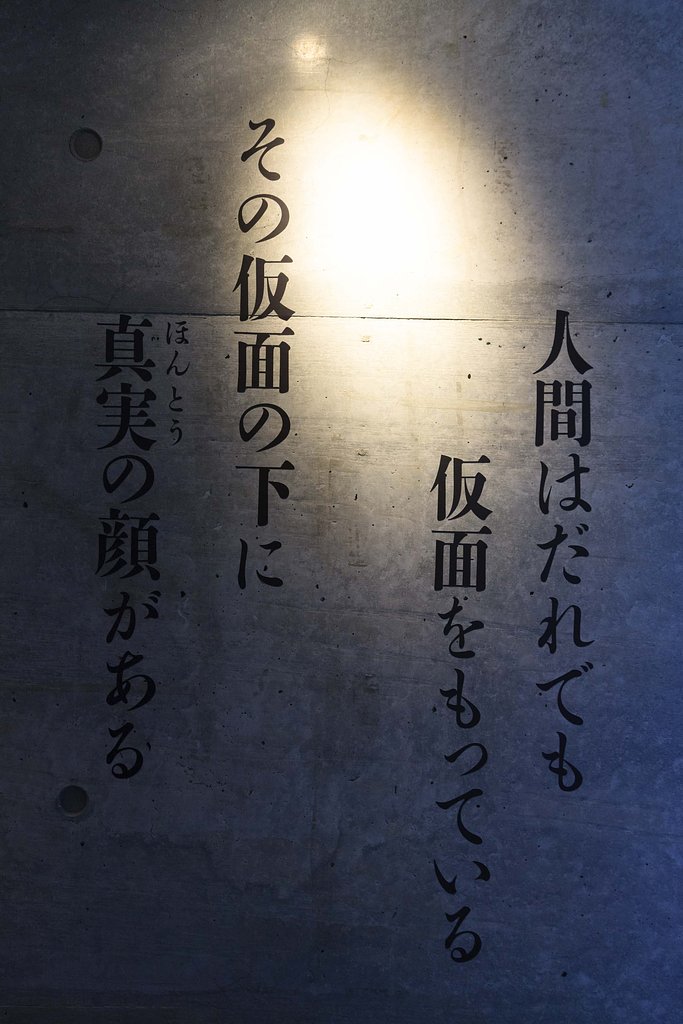 人間はだれでも
仮面をもっている
その仮面の下に
ほんとう
真実の顔がある